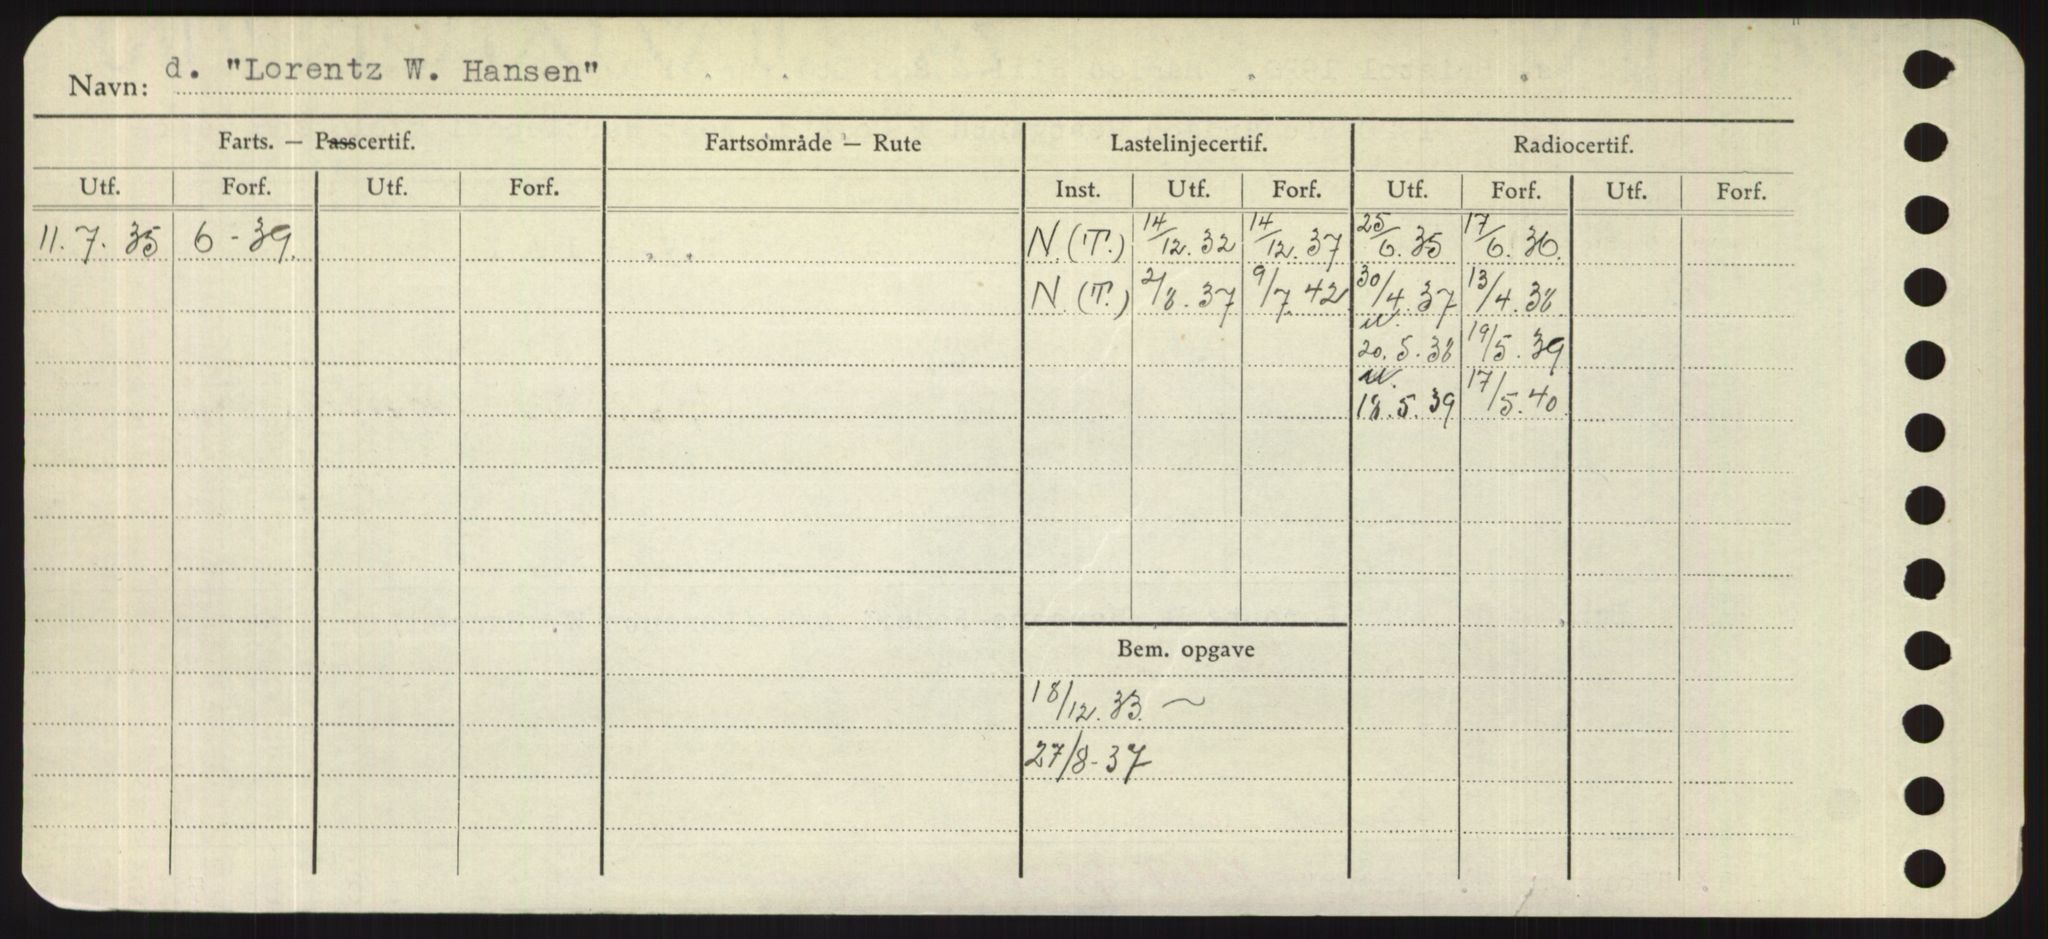 Navn: d. "Lorentz W. Hansen"
Farts. — Passcertif. Fartsområde — Rute Lastelinjecertif. Radiocertif.
Utf. Forf. Utf. Forf. Inst. Utf. Forf. Utf. Forf. Utf. Forf.
11. 7. 35 6 - 39. N. (T.) 14/12. 32 14/12. 37 25/6. 35 17/6. 36.
N. (T.) 2/8. 37 9/7. 42 30/4. 37 13/4. 38
20. 5. 38 19/5. 39
18. 5. 39 17/5. 40.
Bem. opgave
18/12. 33. ~
27/8-37